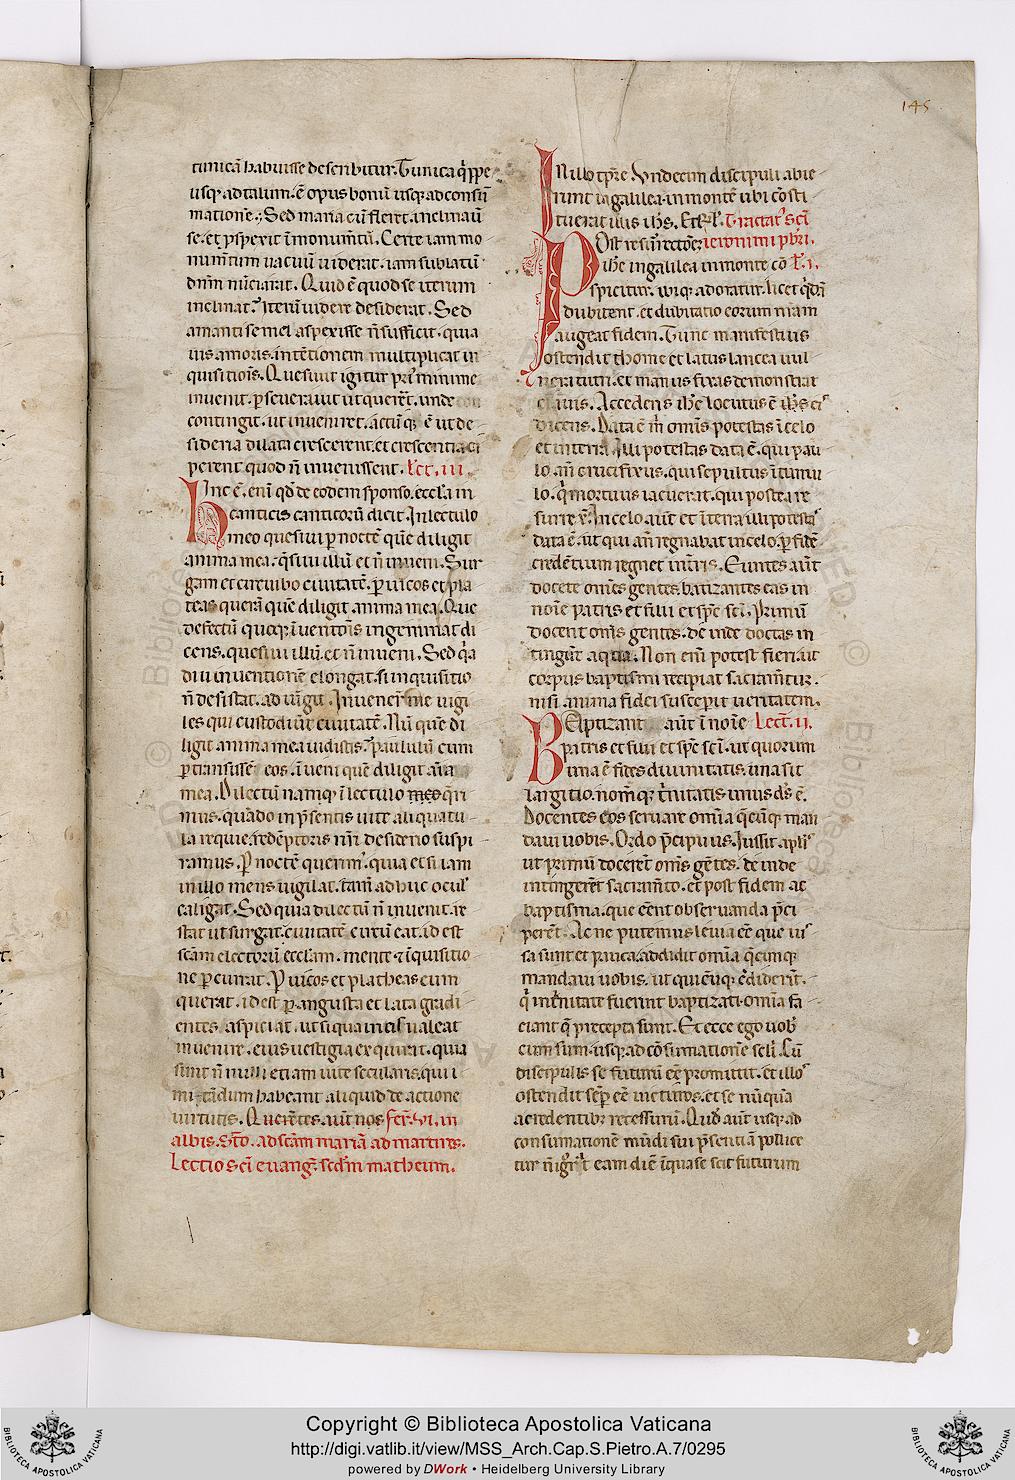 145
tunicā habuisse describitur. Tunica q̇ppe
usq; ad talum. ē opus bonū usq; ad consū
mationē. Sed maria cū fleret. inclinaū
se. et ꝓspexit ī monum̄tū. Certe iam mo
num̄tum uacuū uiderat. iam sublatū
dn̄m nūciarat. Quid ē quod se iterum
inclinat? Iterū uidere desiderat. Sed
amanti semel aspexisse n̄ sufficit. quia
uis amoris. intētionem multiplicat in
quisitiois. Quesiuit igitur pri' minime
inuenit. ꝑseuerauit ut quereret. unde
contingit. ut inueniret. actūq; ē ut de
sideria dilata crescerent. et crescentia ca
perent quod n̄ inuenissent. Lec. iii.
Hinc ē. enī qd̄ de eodem sponso. eccl̄a in
canticis canticorū dicit. In lectulo
meo quesiui ꝑ noctē quē diligit
anima mea. q̄siui illū et n̄ inueni. Sur
gam et circuibo ciuitatē. ꝑ uicos et pla
teas querā quē diligit anima mea. Que
defectū quoq; īuentoīs ingeminat di
cens. quesiui illū. et n̄ inueni. Sed q̇a
diu inuentionē elongat. si inquisitio
n̄ desistat. Inuener̄ me uigi
les qui custodiūt ciuitatē. Nū quē di
ligit anima mea uidistis. paululū cum
ꝑtransissē eos. īueni quē diligit aīa
mea. Dilectū namq; ī lectulo q̄ri
mus. quādo in p̄sentis uite aliquātu
la requie. redēptoris nr̄i desiderio suspi
ramus. ꝑ noctē querim'. quia etsi iam
in illo mens uigilat. tam̄ adhuc ocul'
caligat. Sed quia dilectū n̄ inuenit. re
stat ut surgat. ciuitatē circūeat. id est
sc̄am electorū eccl̄am. mente ⁊ īquisitio
ne ꝑcurrat. ꝑ uicos et platheas eum
querat. id est ꝑ angusta et lata gradi
entes aspiciat. ut si qua in eis ualeat
inuenire. eius uestigia exquirat. quia
sunt n̄nulli etiam uite secularis. qui i
mitādum habeant aliquid de actione
uirtutis. Querētes aūt nos fer̄. vi. in
albis. Stō. ad sc̄am mariā ad martires.
Lectio sc̄i euangꝫ. sedm̄ matheum.
In illo tp̄re. Vndecim discipuli abie
runt in galilea. in montē ubi cōsti
tuerat illis ih̄s. Et rl'. Tractat' sc̄i
Post resurrectōeꝫ ieronimi pbr̄i.
ih̄c in galilea in monte cō L'. i.
spicitur. ibiq; adoratur. licet q̇dā
dubitent. et dubitatio eorum n̄ram
augeat fidem. Tunc manifestius
ostenditur thome et latus lancea uul
neratum. et manus fixas demonstrat
clauis. Accedens ih̄c locutus ē ih̄s eis
dicens. Data ē m̄ omīs potestas ī celo
et in terra. Illi potestas data ē. qui pau
lo an̄ crucifixus. qui sepultus ī tumu
lo. q̇ mortuus iacuerat. qui postea re
surrexit. In celo aūt et ī terra illi potestas
data ē. ut qui an̄ regnabat in celo. ꝑ fidē
credētium regnet in t̄ris. Euntes aūt
docete omēs gentes. batizantes eas in
noīe patris et filii et sp̄c sc̄i. Primū
docent omīs gentes. deinde doctas in
tingūt aqua. Non enī potest fieri. ut
corpus baptismi recipiat sacram̄tum.
nisi anima fidei susceperit ueritatem.
Baptizant aūt ī noīe Lect. ii.
patris et filii et sp̄c sc̄i. ut quorum
una ē fides diuinitatis. una sit
largitio. nomēq; t̄nitatis unus ds̄ ē.
Docentes eos seruare omīa q̄cūq; man
daui uobis. Ordo p̄cipuus. Iussit apl̄is
ut primū docerēt omīs gētes. deinde
intingerēt sacram̄to. et post fidem ac
baptisma. que eēnt obseruanda p̄ci
perēt. Ac ne putemus leuia eē que ius
sa sunt et pauca. addidit. omīa q̄cūmq;
mandaui uobis. ut quicūq; crediderīt.
q̇ in t̄nitate fuerint baptizati. omīa fa
ciant q̄ precepta sunt. Et ecce ego uob'
cum sum. usq; ad cōsummationē sc̄li. Cū
discipulis se futurū eē promittit. et illos
ostendit semp̄ eē uicturos. et se nūqua
a credentib; recessurū. Quod aūt usq; ad
consumationē mūdi sui p̄sentiā pollice
tur n̄ ignorat eam diē ī qua se scit futurum
Copyright © Biblioteca Apostolica Vaticana
http://digi.vatlib.it/view/MSS_Arch.Cap.S.Pietro.A.7/0295
powered by DWork • Heidelberg University Library
BIBLIOTECA APOSTOLICA VATICANA
BIBLIOTECA APOSTOLICA VATICANA